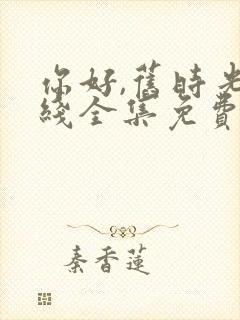 你好,舊時光
綫全集免費
秦香蓮